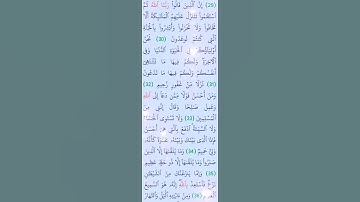 (29) إِنَّ الَّذِينَ قَالُوا رَبُّنَا اللَّهُ ثُمَّ
اسْتَقَٰمُوا تَتَنَزَّلُ عَلَيْهِمُ الْمَلَٰئِكَةُ أَلَّا
تَخَافُوا وَلَا تَحْزَنُوا وَأَبْشِرُوا بِالْجَنَّةِ
الَّتِي كُنتُمْ تُوعَدُونَ (30) نَحْنُ
أَوْلِيَاؤُكُمْ فِي الْحَيَوٰةِ الدُّنْيَا وَفِي
الْآخِرَةِ وَلَكُمْ فِيهَا مَا تَشْتَهِي
أَنفُسُكُمْ وَلَكُمْ فِيهَا مَا تَدَّعُونَ
(31) نُزُلًا مِّنْ غَفُورٍ رَّحِيمٍ (32)
وَمَنْ أَحْسَنُ قَوْلًا مِّمَّن دَعَا إِلَى اللَّهِ
وَعَمِلَ صَٰلِحًا وَقَالَ إِنَّنِي مِنَ
الْمُسْلِمِينَ (33) وَلَا تَسْتَوِي الْحَسَنَةُ
وَلَا السَّيِّئَةُ ادْفَعْ بِالَّتِي هِيَ أَحْسَنُ
فَإِذَا الَّذِي بَيْنَكَ وَبَيْنَهُ عَدَٰوَةٌ كَأَنَّهُ
وَلِيٌّ حَمِيمٌ (34) وَمَا يُلَقَّىٰهَا إِلَّا الَّذِينَ
صَبَرُوا وَمَا يُلَقَّىٰهَا إِلَّا ذُو حَظٍّ عَظِيمٍ
(35) وَإِمَّا يَنزَغَنَّكَ مِنَ الشَّيْطَٰنِ
نَزْغٌ فَاسْتَعِذْ بِاللَّهِ إِنَّهُ هُوَ السَّمِيعُ
الْعَلِيمُ (36) وَمِنْ ءَايَٰتِهِ اللَّيْلُ وَالنَّهَارُ